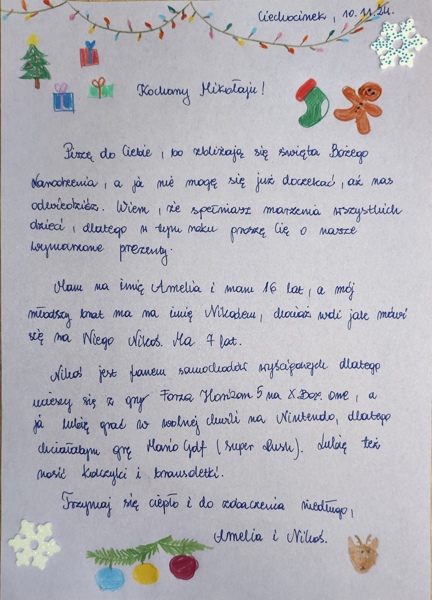 Ciechocinek, 10.11.24.
Kochany Mikołaju!
Piszę do Ciebie, bo zbliżają się święta Bożego
Narodzenia, a ja nie mogę się już doczekać, aż nas
odwiedzisz. Wiem, że spełniasz marzenia wszystkich
dzieci, dlatego w tym roku proszę Cię o nasze
wymarzone prezenty.
Mam na imię Amelia i mam 16 lat, a mój
młodszy brat ma na imię Nikodem, chociaż woli jak mówi
się na Niego Nikoś. Ma 7 lat.
Nikoś jest fanem samochodów wyścigowych dlatego
ucieszy się z gry Forza Horizon 5 na X Box one, a
ja lubię grać w wolnej chwili na Nintendo, dlatego
chciałabym grę Mario Golf (Super Rush). Lubię też
nosić kolczyki i bransoletki.
Trzymaj się ciepło i do zobaczenia niedługo,
Amelia i Nikoś.